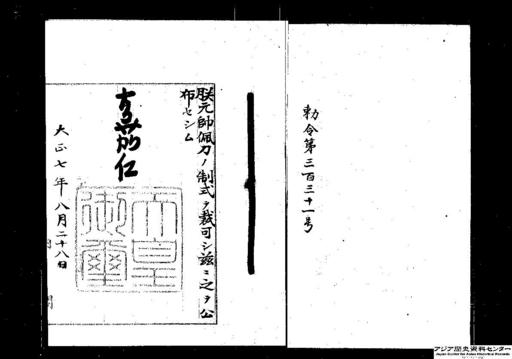 朕元帥佩刀ノ制式ヲ裁可シ茲ニ之ヲ公
布セシム
嘉仁
天皇
御璽
大正七年八月二十八日
勅令第三百三十一号
アジア歴史資料センター
Japan Center for Asian Historical Records